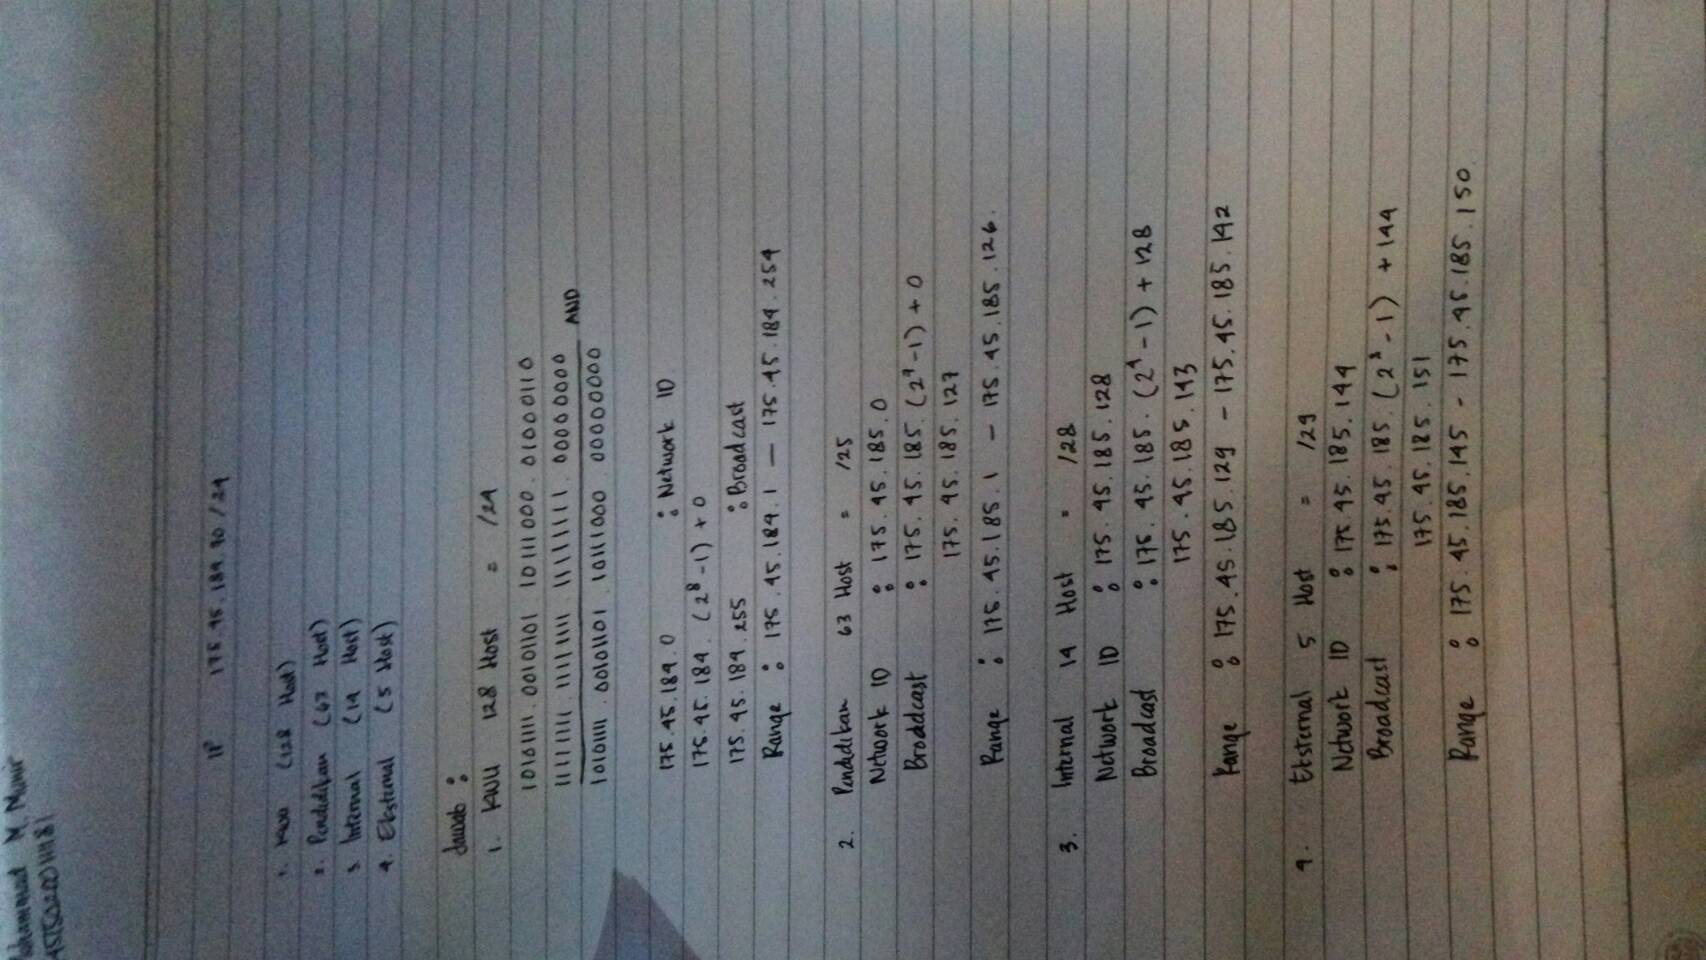 Muhammad M. Munir
IP 175.45.184.70/24
1. KWU (128 Host)
2. Pendidikan (63 Host)
3. Internal (14 Host)
4. Eksternal (5 Host)
Jawab :
1. KWU 128 Host = /24
10101111.00101101 10111000.01000110
11111111.11111111.11111111.00000000 AND
10101111.00101101.10111000 00000000
175.45.184.0 : Network ID
175.45.184.(2⁸-1)+0
175.45.184.255 : Broadcast
Range : 175.45.184.1 — 175.45.184.254
2. Pendidikan 63 Host = /25
Network ID : 175.45.185.0
Broadcast : 175.45.185.(2⁷-1)+0
175.45.185.127
Range : 175.45.185.1 — 175.45.185.126.
3. Internal 14 Host = /28
Network ID : 175.45.185.128
Broadcast : 175.45.185.(2⁴-1)+128
175.45.185.143
Range : 175.45.185.129 - 175.45.185.142
4. Eksternal 5 Host = /29
Network ID : 175.45.185.144
Broadcast : 175.45.185.(2³-1)+144
175.45.185.151
Range : 175.45.185.145 - 175.45.185.150